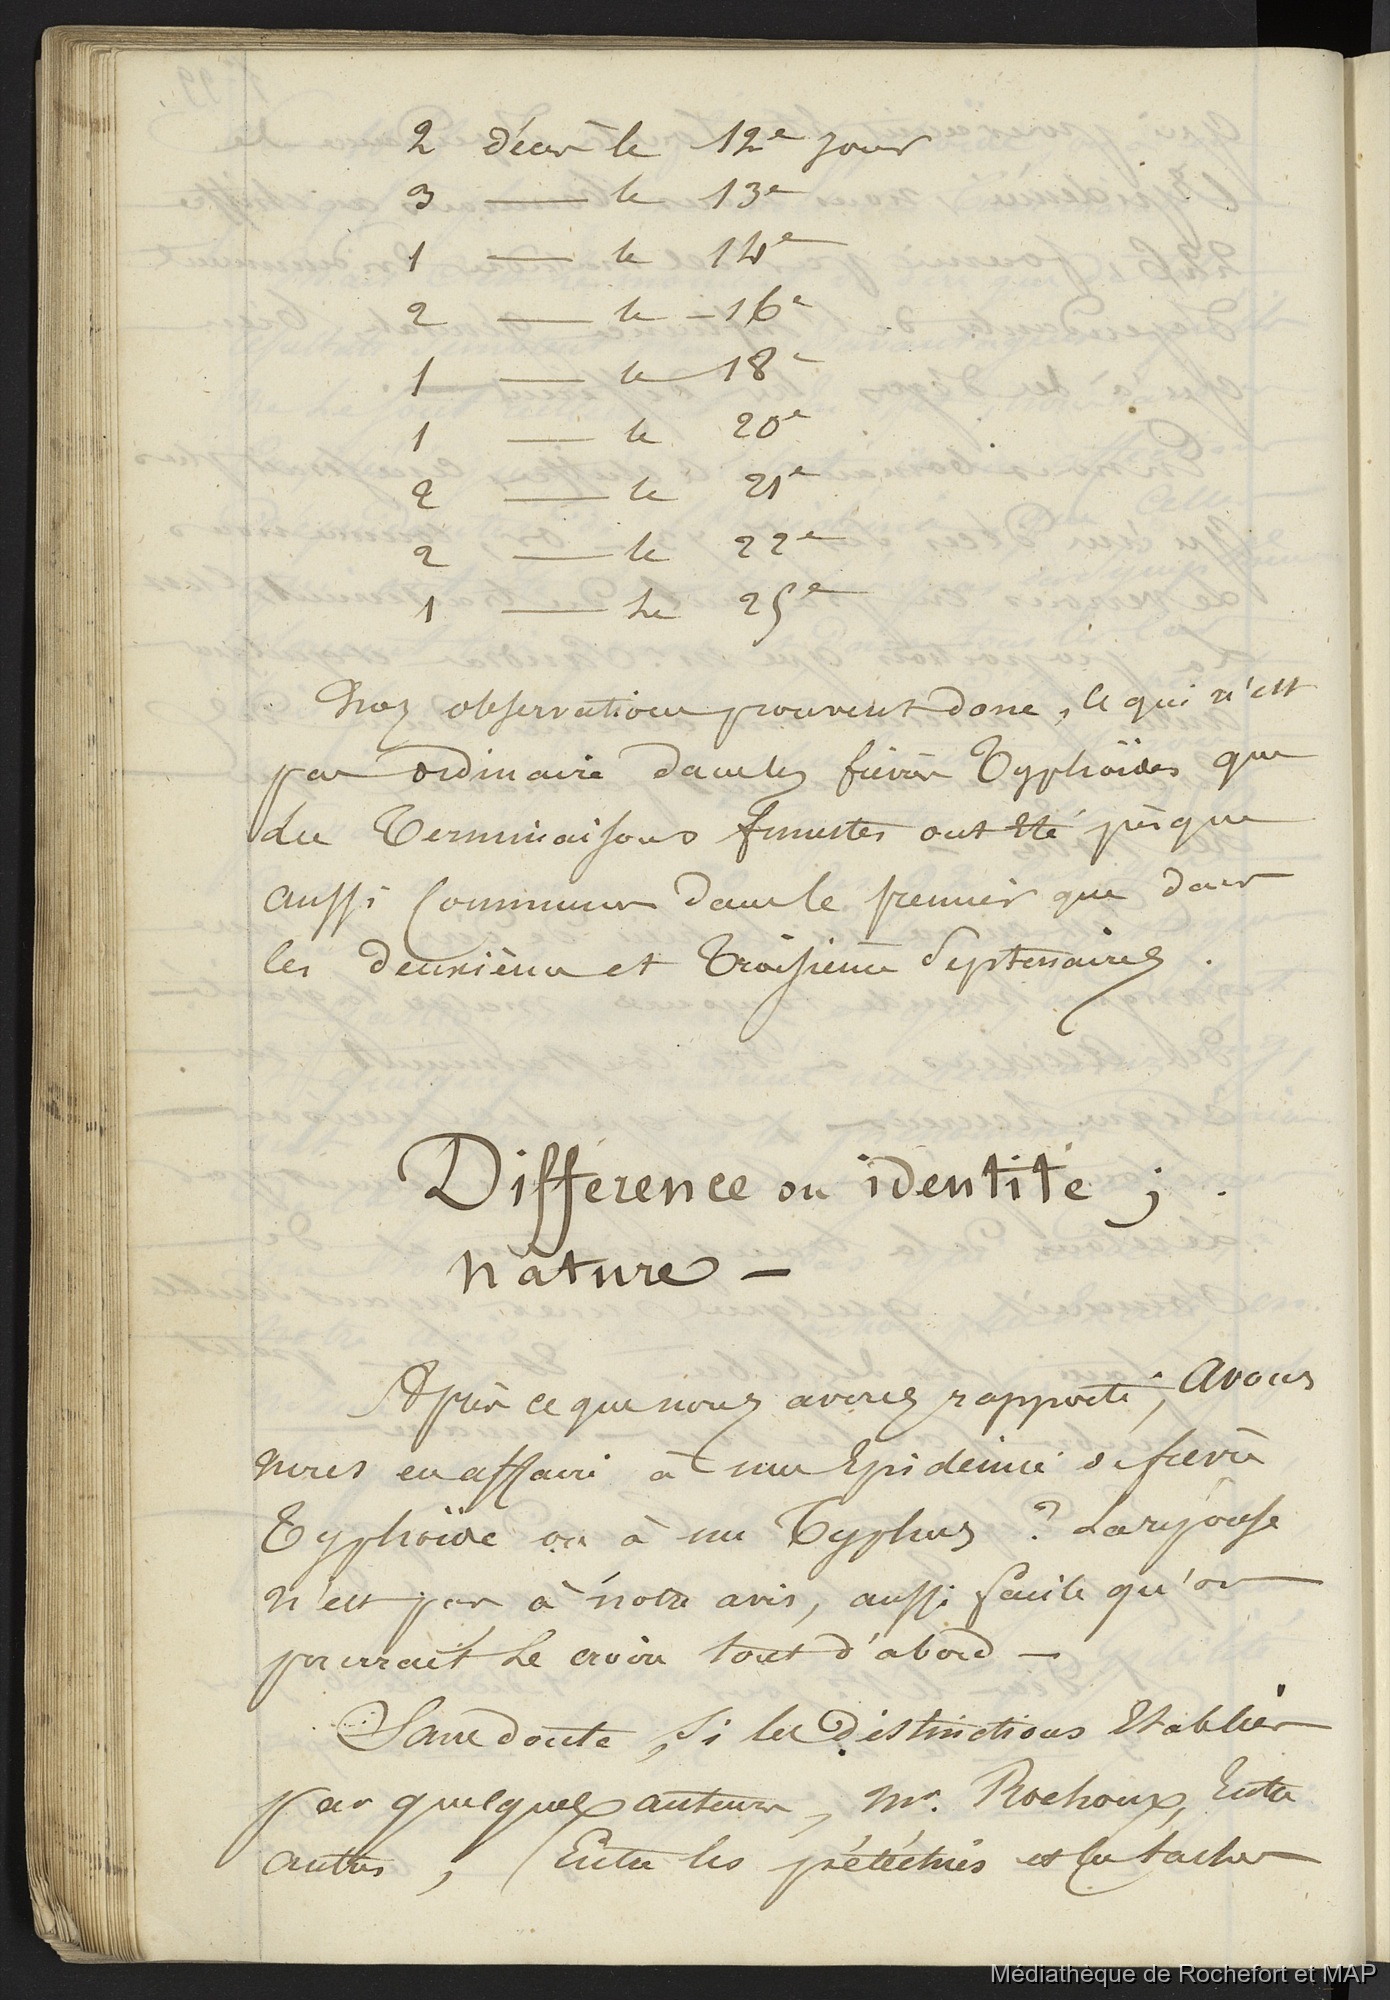 2 décès le 12e jour
3 — le 13e
1 — le 14e
2 — le 16e
1 — le 18e
1 — le 20e
2 — le 21e
2 — le 22e
1 — Le 25e
Nos observations prouvent donc, ce qui n'est
pas ordinaire dans les fièvres Typhoïdes que
les Terminaisons funestes ont été presque
aussi Communes dans le premier que dans
les deuxième et Troisième Septenaires.
Difference ou identité ;
nature —
Après ce que nous avons rapporté, avons
nous eu affaire à une Epidémie de fièvre
Typhoïde ou à un Typhus ? La réponse
n'est pas à notre avis, aussi facile qu'on
pourrait le croire tout d'abord —
Sans doute, si les distinctions Etablies
par quelques auteurs, Mr. Rochoux, Entre
autres, Entre les pétéchies et les taches
Médiathèque de Rochefort et MAP